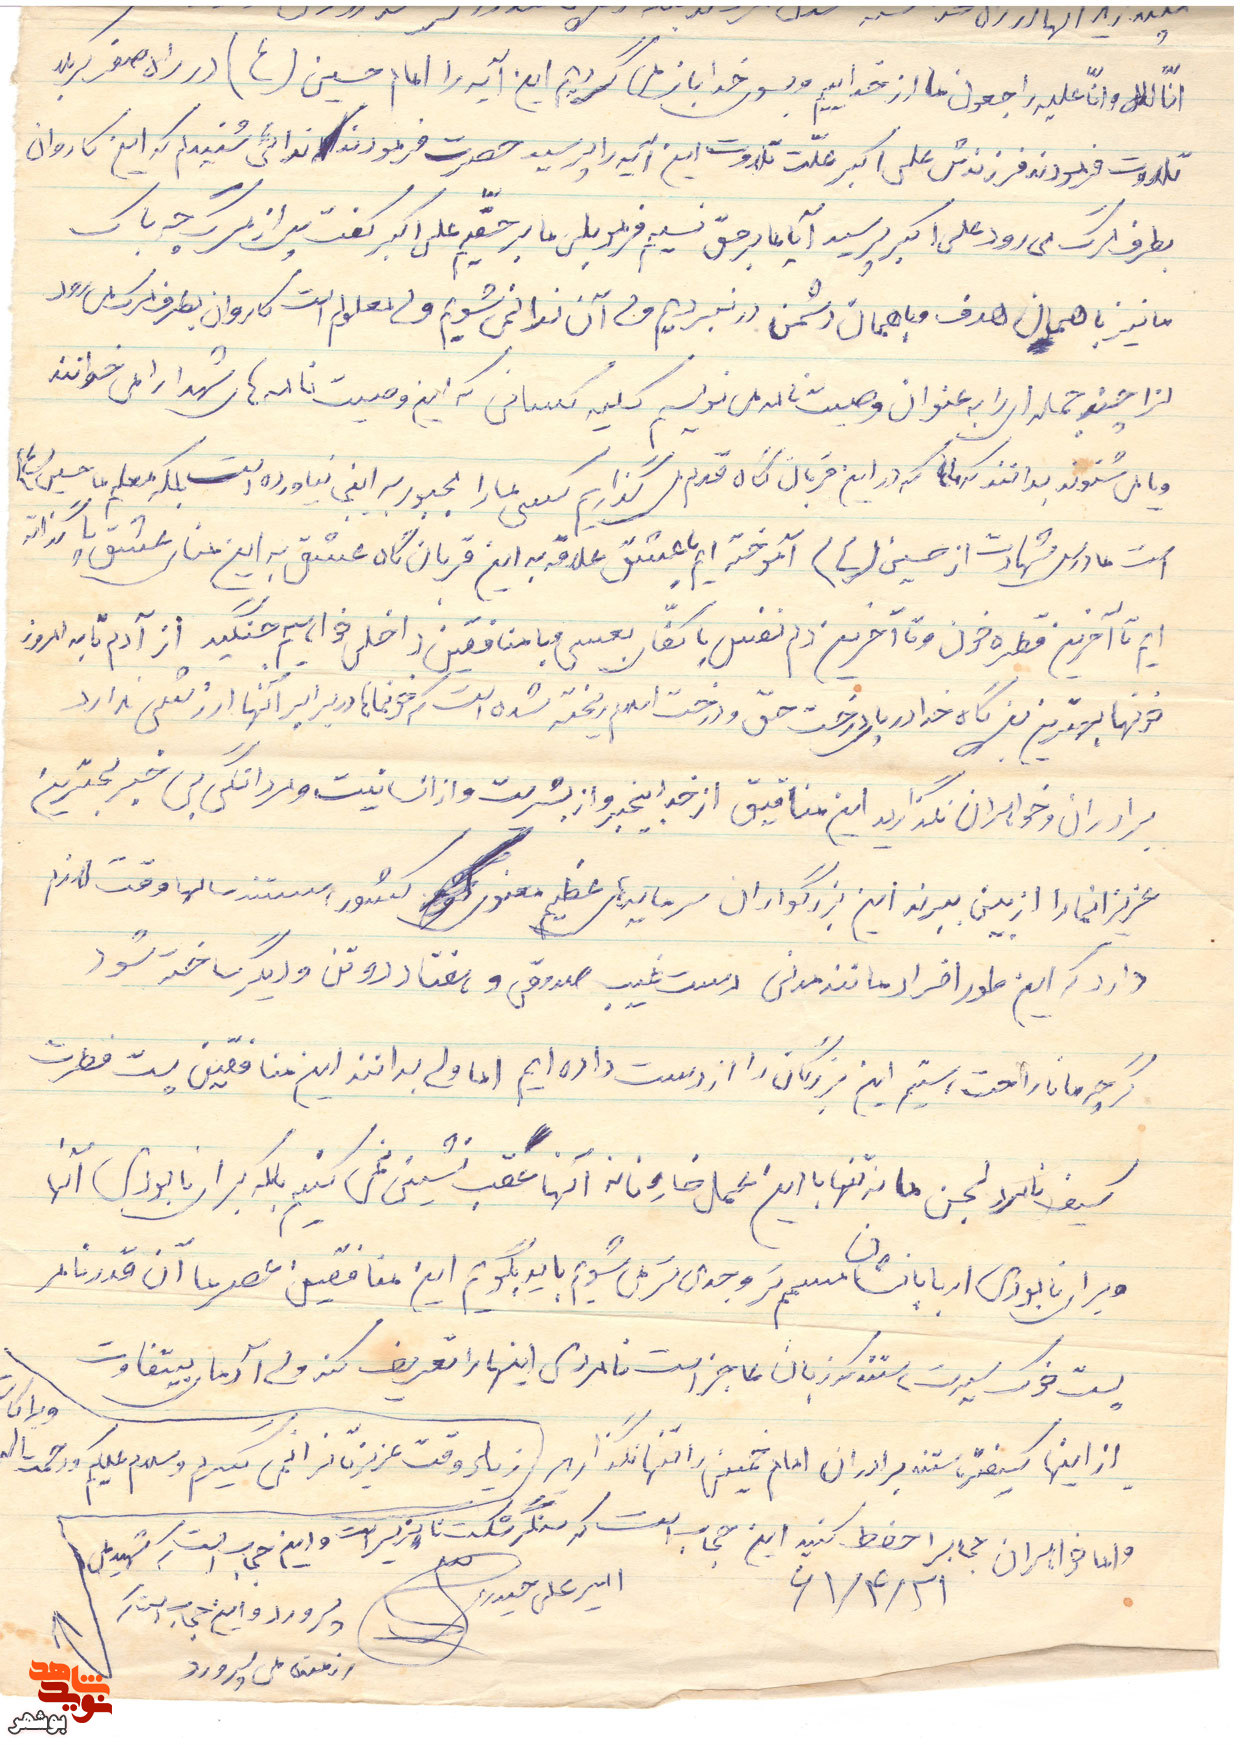 انّا لله و انّا علیه راجعون ما از خداییم و بسوی خدا باز می گردیم این آیه را امام حسین (ع) در راه سفر کربلا
تلاوت فرمودند فرزندش علی اکبر علّت تلاوت این آیه را پرسید حضرت فرمودند ندائی شنیدم که این کاروان
بطرف مرگ می رود علی اکبر پرسید آیا ما بر حق نیستیم فرمود بلی ما بر حقّیم علی اکبر گفت پس از مرگ چه باک
ما نیز با همان هدف و با همان دشمن در نبردیم ولی آن ندا نمی شنویم ولی معلوم است کاروان بطرف مرگ می رود
لذا چند جمله ای را به عنوان وصیت نامه می نویسم کلیه کسانی که این وصیت نامه های شهدا را می خوانند
و یا می شنوند بدانند که ما که در این قربان گاه قدم می گذاریم کسی ما را مجبور به اینجا نیاورده است بلکه معلم ما حسین (ع)
است ما درس شهادت از حسین (ع) آموخته ایم با عشق علاقه به این قربان گاه عشق به این منای عشق پا گذاشته
ایم تا آخرین قطره خون و تا آخرین دم نفس با کفّار بعثی و با منافقین داخلی خواهیم جنگید از آدم تا به امروز
خونها بهترین بندگان خدا در پای درخت حق و درخت اسلام ریخته شده است که خونهای ما در برابر آنها ارزشی ندارد
برادران و خواهران نگذارید این منافیق از خدا بیخبر و از بشریت و از انسانیت و مردانگی بی خبر بهترین
عزیزانما را از بین ببرند این بزرگواران سرمایه های عظیم معنوی کشور هستند سالها وقت لازم
دارد که این طور افراد مانند مدنی دست غیب صدوقی و هفتاد دو تن و دیگر ساخته شود
گرچه ما ناراحت هستیم این بزرگان را از دست داده ایم اما ولی بدانند این منافقین پست فطرت
کثیف نامرد لجن ما نه تنها با این عمل خائنانه آنها عقب نشینی نمی کنیم بلکه برای نابودی آنها
و برای نابودی اربابانشان مسمم تر و جدی تر می شویم باید بگویم این منافقین عصر ما آن قدر نامر
پست خوک سیرت هستند که زبان عاجز است نامردی اینها را تعریف کند ولی آدمهای بیتفاوت
از اینها کثیفترهستند برادران امام خمینی را تنها نگذارید زیاد وقت عزیزتانرا نمی گیرم و سلام علیکم و رحمت الله
و برکات
و اما خواهران حجابرا حفظ کنید این حجاب است که سنگر شکست ناپذیر است و این حجاب است که شهید می
پرورد و این حجاب است که
رزمنده می پرورد
امیر علی حیدری
۶۱/۴/۳۱
شاهد
نوید
بوشهر